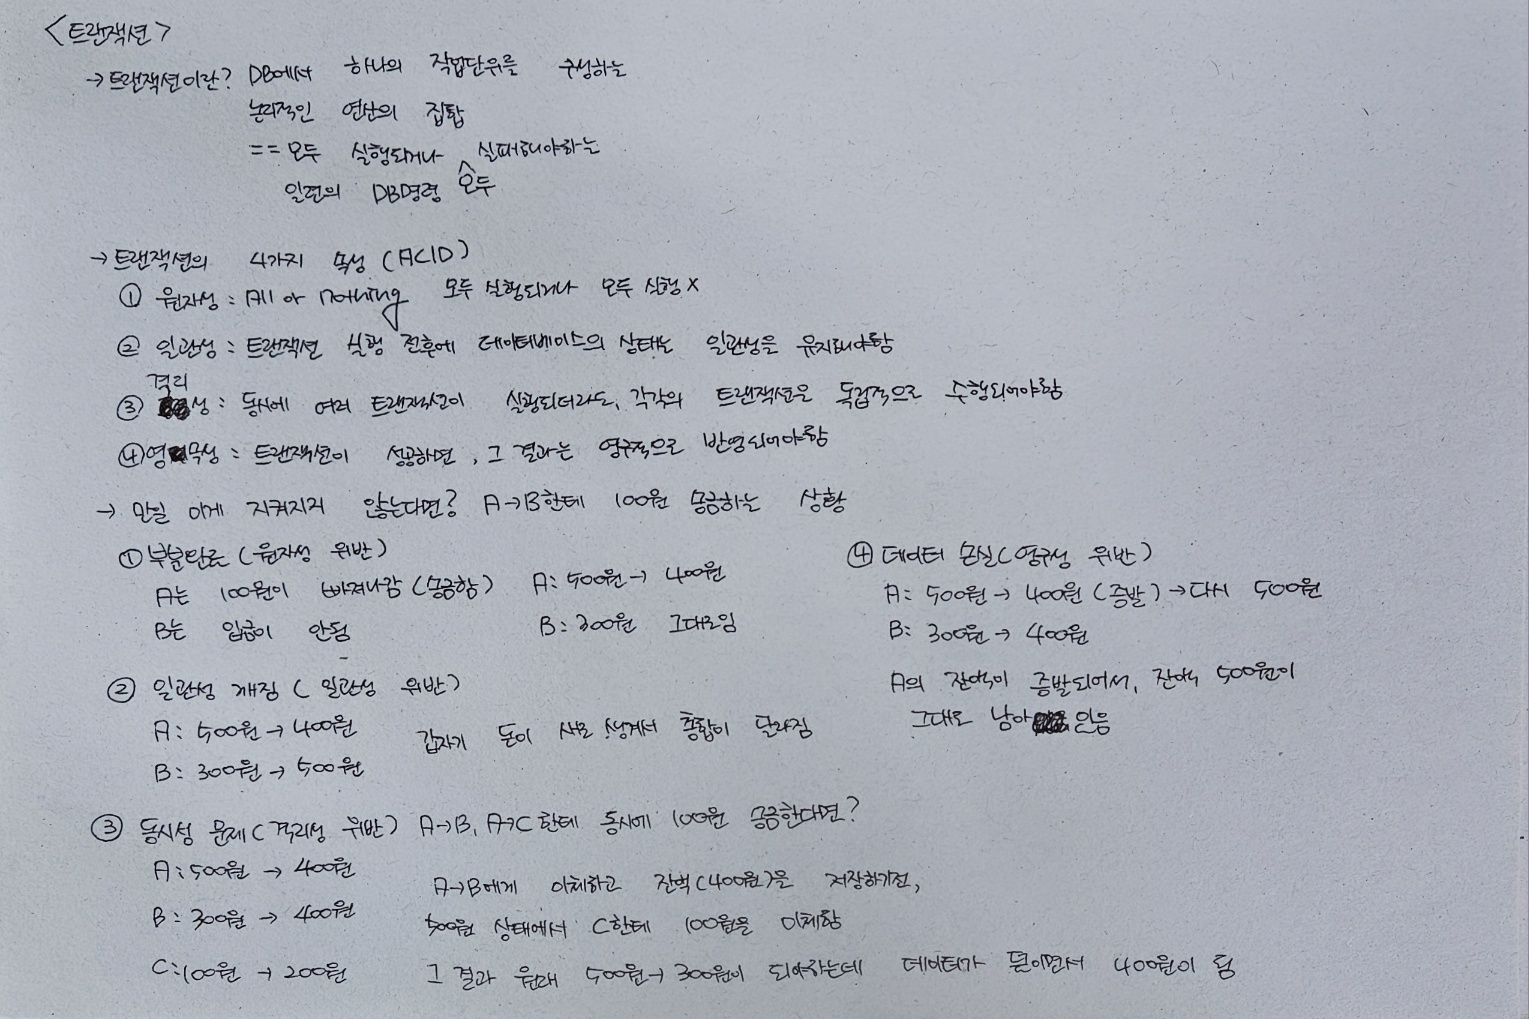 <트랜잭션>
→ 트랜잭션이란? DB에서 하나의 작업단위를 구성하는
논리적인 연산의 집합
== 모두 실행되거나 모두 실패해야하는
일련의 DB명령
→ 트랜잭션의 4가지 속성 (ACID)
① 원자성 : All or nothing 모두 실행되거나 모두 실행 X
② 일관성 : 트랜잭션 실행 전후에 데이터베이스의 상태는 일관성을 유지해야함
③ 격리성 : 동시에 여러 트랜잭션이 실행되더라도, 각각의 트랜잭션은 독립적으로 수행되어야함
④ 영속성 : 트랜잭션이 성공하면, 그 결과는 영구적으로 반영되어야함
→ 만일 이게 지켜지지 않는다면? A→B한테 100원 송금하는 상황
① 부분완료 (원자성 위반)
A는 100원이 빠져나감 (송금함) A: 500원 → 400원
B는 입금이 안됨 B: 300원 그대로임
② 일관성 깨짐 (일관성 위반)
A: 500원 → 400원 갑자기 돈이 새로 생겨서 총합이 달라짐
B: 300원 → 500원
③ 동시성 문제 (격리성 위반) A→B, A→C한테 동시에 100원 송금한다면?
A: 500원 → 400원
B: 300원 → 400원
C: 100원 → 200원
A→B에게 이체하고 잔액(400원)을 저장하기전,
500원 상태에서 C한테 100원을 이체함
그 결과 원래 500원→300원이 되야하는데 데이터가 꼬이면서 400원이 됨
④ 데이터 손실 (영구성 위반)
A: 500원 → 400원 (증발) → 다시 500원
B: 300원 → 400원
A의 잔액이 증발되어서, 잔액 500원이
그대로 남아 있음